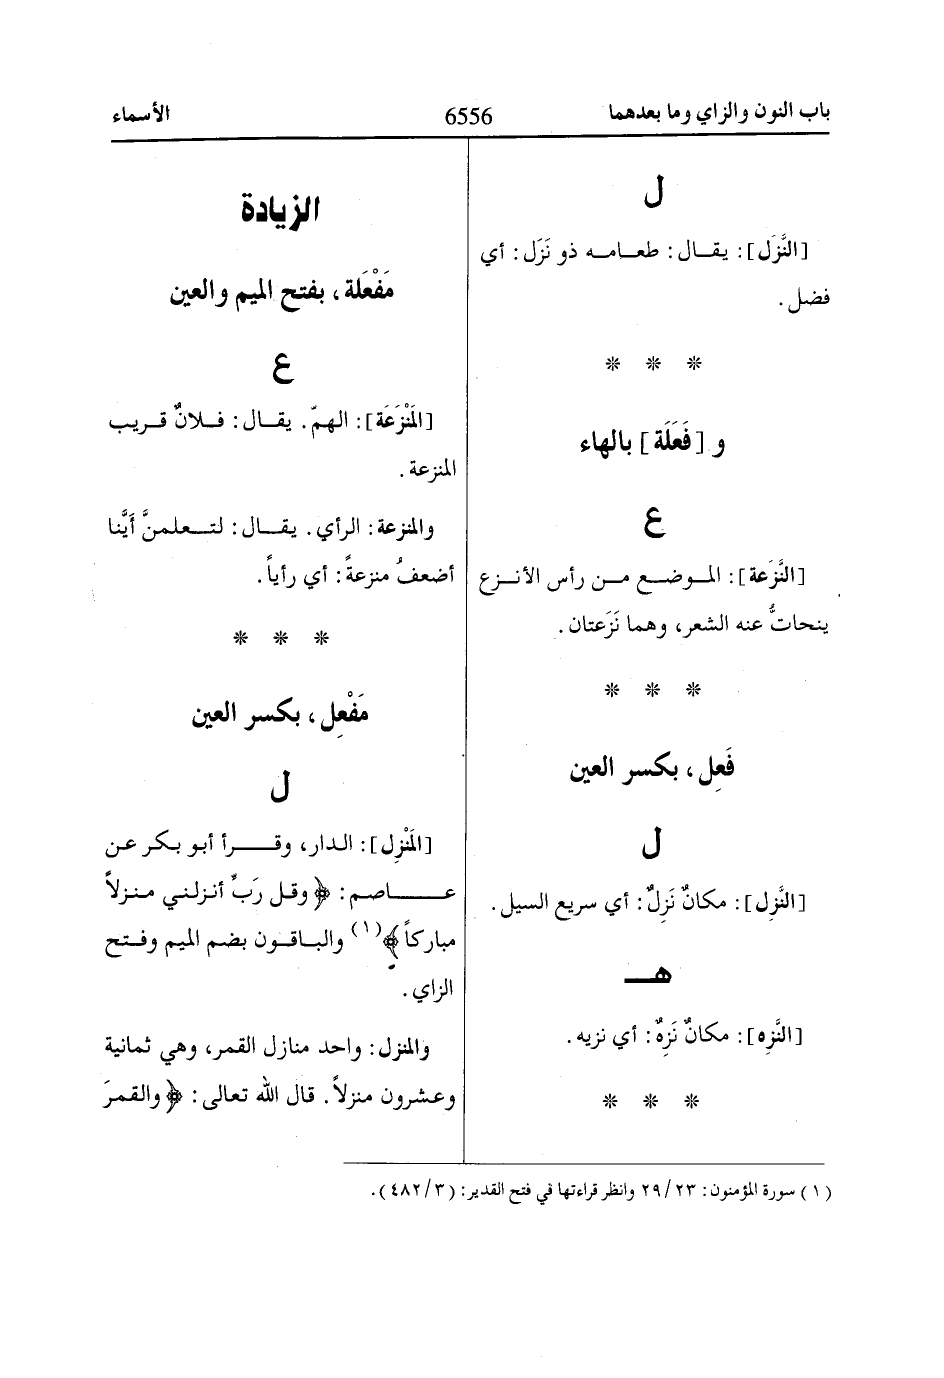 باب النون والزاي وما بعدهما 6556 الأسماء
ل
[النَّزَل]: يقال: طعامه ذو نَزَل: أي
فضل.
* * *
و [فَعَلَة] بالهاء
ع
[النَّزَعة]: الموضع من رأس الأنزع
ينحاتُّ عنه الشعر، وهما نَزَعتان.
* * *
فَعِل، بكسر العين
ل
[النَّزِل]: مكانٌ نَزِلٌ: أي سريع السيل.
هـ
[النَّزِه]: مكانٌ نَزِهٌ: أي نزيه.
* * *
الزيادة
مَفْعَلة، بفتح الميم والعين
ع
[المَنْزَعَة]: الهمّ. يقال: فلانٌ قريب
المنزعة.
والمنزعة: الرأي. يقال: لتعلمنَّ أَيَّنا
أضعفُ منزعةً: أي رأياً.
* * *
مَفْعِل، بكسر العين
ل
[المَنْزِل]: الدار، وقرأ أبو بكر عن
عاصم: ﴿وقل رَبِّ أنزلني منزلاً
مباركاً﴾(١) والباقون بضم الميم وفتح
الزاي.
والمنزل: واحد منازل القمر، وهي ثمانية
وعشرون منزلاً. قال الله تعالى: ﴿والقمرَ
(١) سورة المؤمنون: ٢٣/ ٢٩ وانظر قراءتها في فتح القدير: (٣/ ٤٨٢).